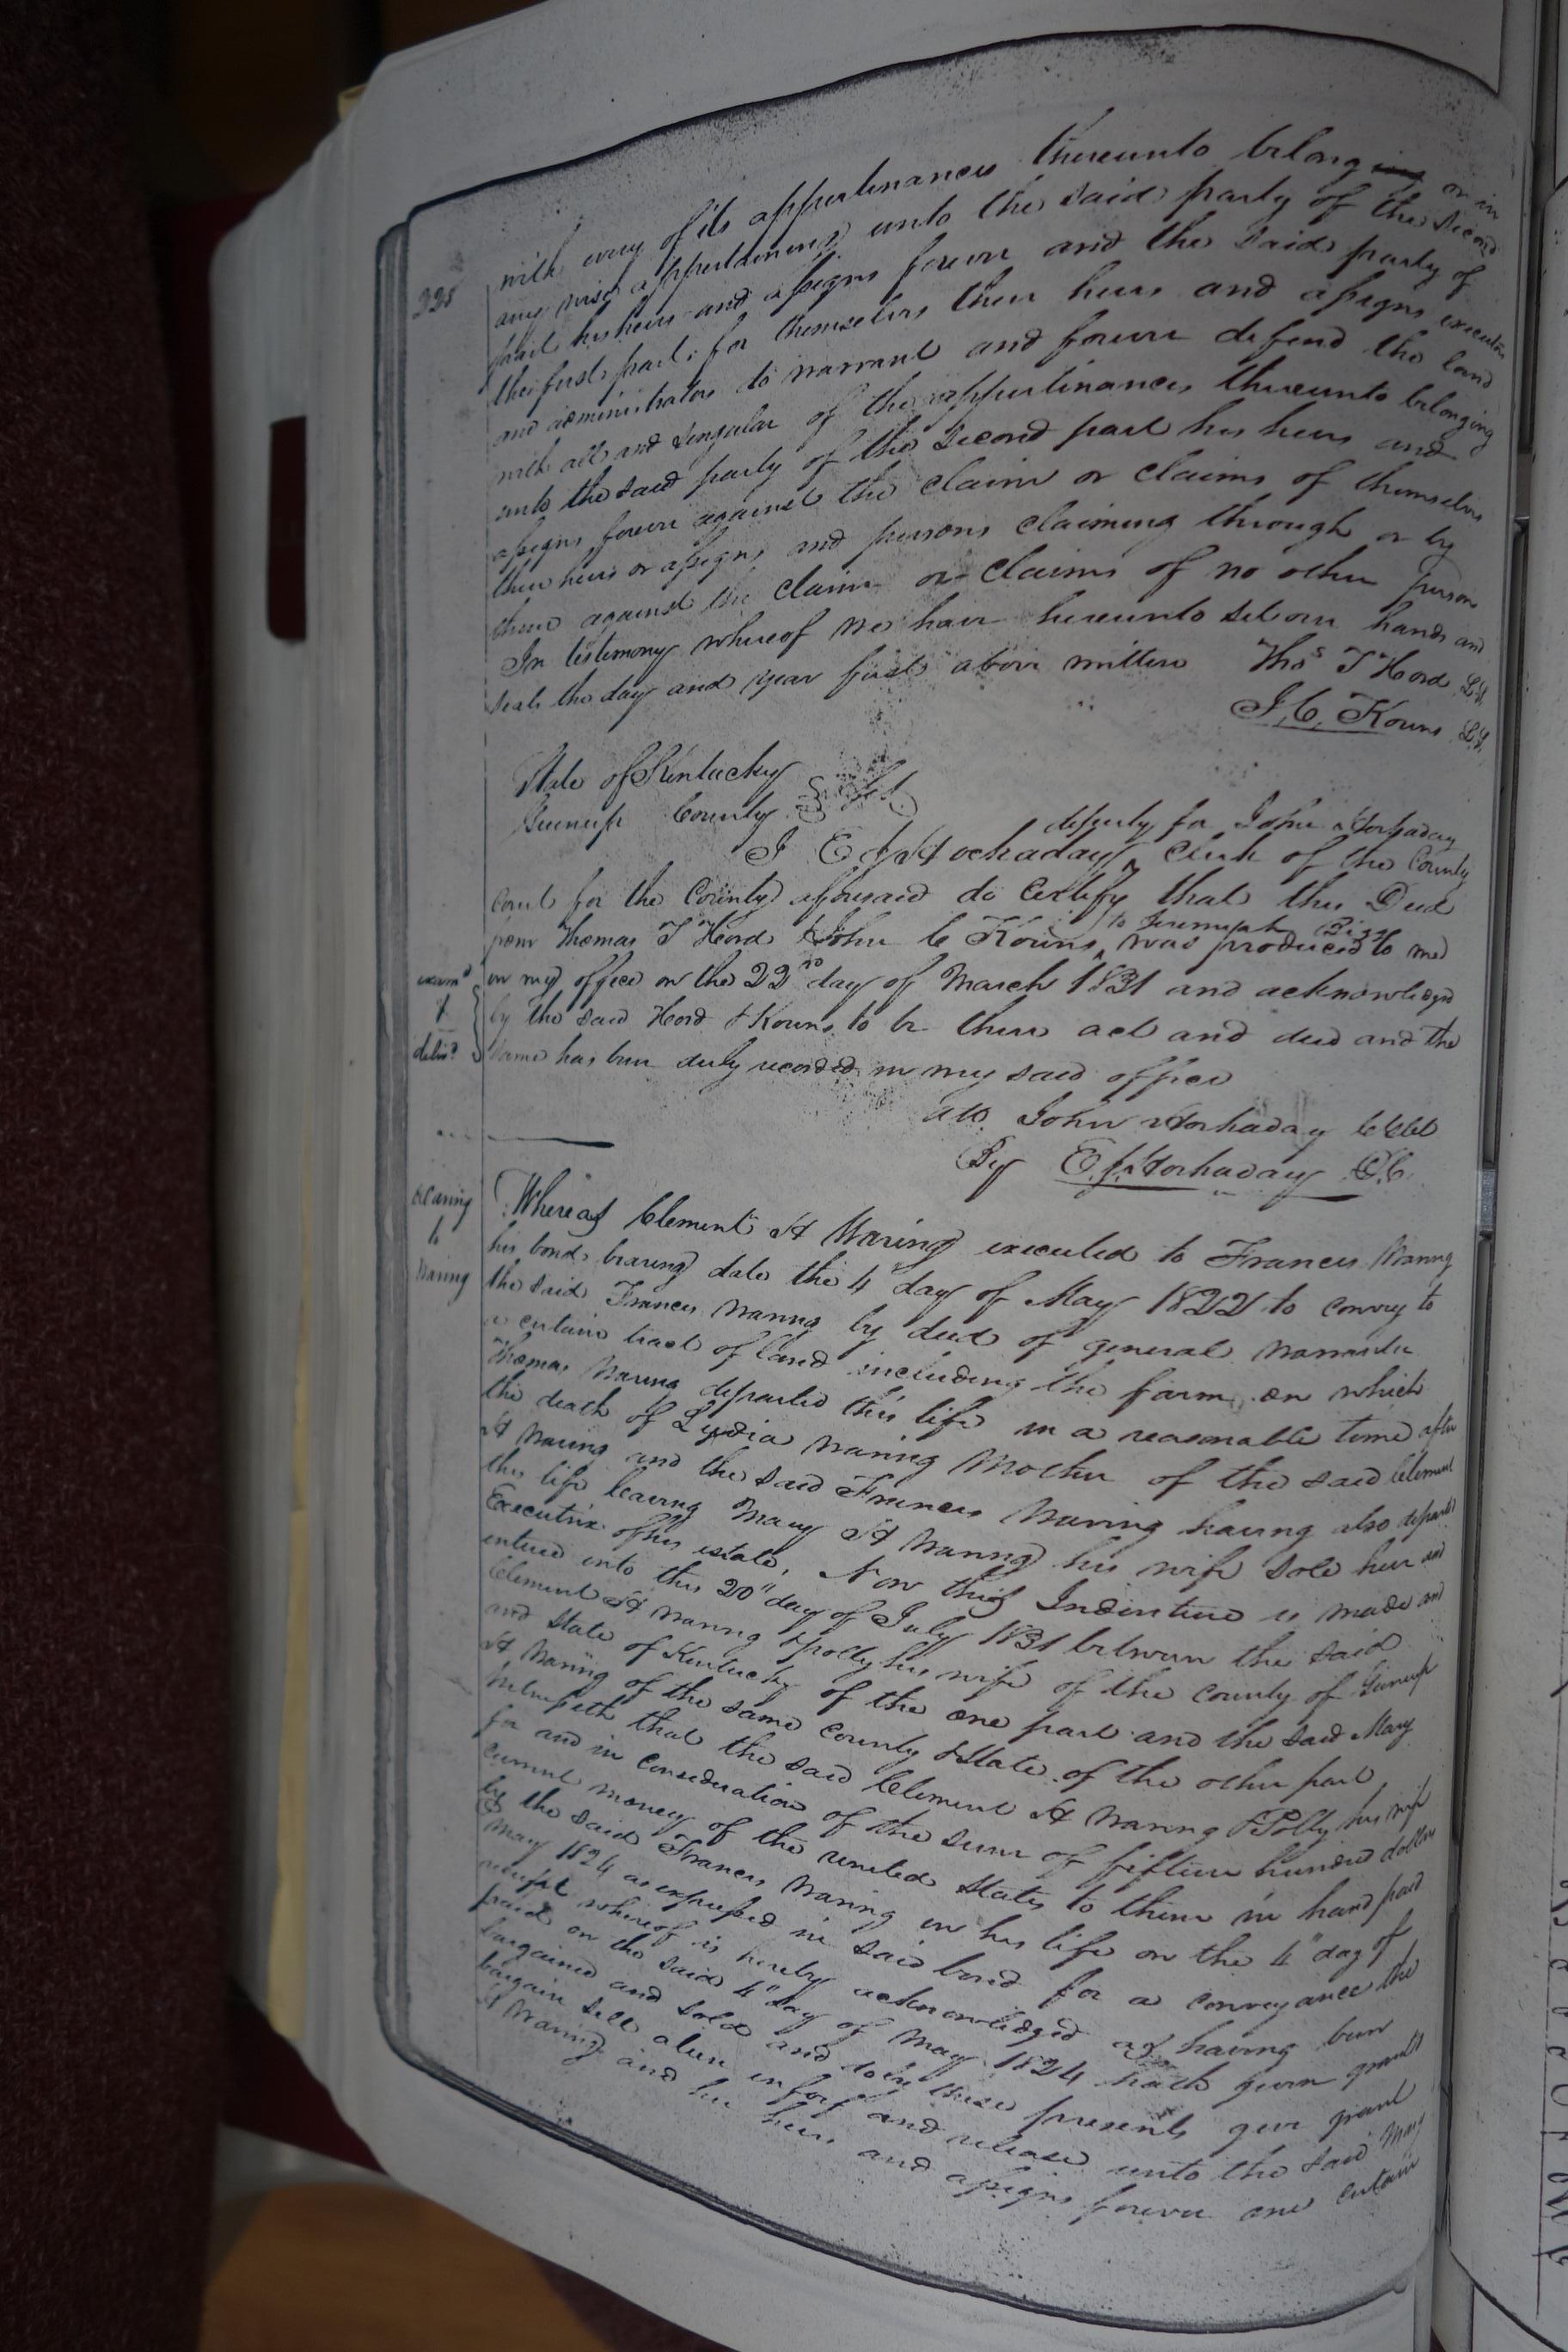 228
with every of its appurtenances thereunto belonging or in
any wise appertaining unto the said party of the second
part his heirs and assigns forever and the said party of
the first part, for themselves their heirs and assigns executors
and administrators do warrant and forever defend the land
with all and singular of the appurtinances thereunto belonging
unto the said party of the second part his heirs and
assigns forever against the claim or claims of themselves
their heirs or assigns and persons claiming through or by
them against the claim or claims of no other persons
In testimony whereof we have hereunto set our hands and
seals the day and year first above written Thos T Hord L.S.
J. C. Kouns L.S.
State of Kentucky
Greenup County Sct.
deputy for John Hockaday
I E J Hockaday ^ Clerk of the County
Court for the County aforesaid do Certify that this Deed
to Jeremiah
from Thomas T Hord & John C Kouns ^ was produced to me
in my office on the 22nd day of March 1831 and acknowledged
by the said Hord & Kouns to be there act and deed and the
same has been duly recorded in my said office
examd
&
delivd
Att. John Hockaday
By E. J. Hockaday D.C.
Waring
to
Waring
Whereas Clement H Waring executed to Francis Waring
his bond bearing date the 4" day of May 1822 to convey to
the said Francis Waring by deed of general warrantee
a certain tract of land including the farm on which
Thomas Waring departed this life in a reasonable time after
the death of Lydia Waring Mother of the said Clement
H Waring and the said Francis Waring having also departed
this life leaving Mary H Waring his wife sole heir and
Executrix of his estate, Now this Indenture is made and
entered into this 20" day of July 1831 between the said
Clement H Waring & Polly his wife of the county of Greenup
and State of Kentucky of the one part and the said Mary
H Waring of the same County & State of the other part
Witnesseth that the said Clement H Waring & Polly his wife
for and in consideration of the sum of fifteen hundred dollars
current money of the united States to them in hand paid
by the said Francis Waring in his life on the 4" day of
May 1824 as expressed in said bond for a conveyance the
receipt whereof is hereby acknowledged as having been
paid on the said 4" day of May 1824 hath given granted
bargained and sold and do by these presents give grant
bargain sell alien enfeof and release unto the said Mary
H Waring and her heirs and assigns forever one certain